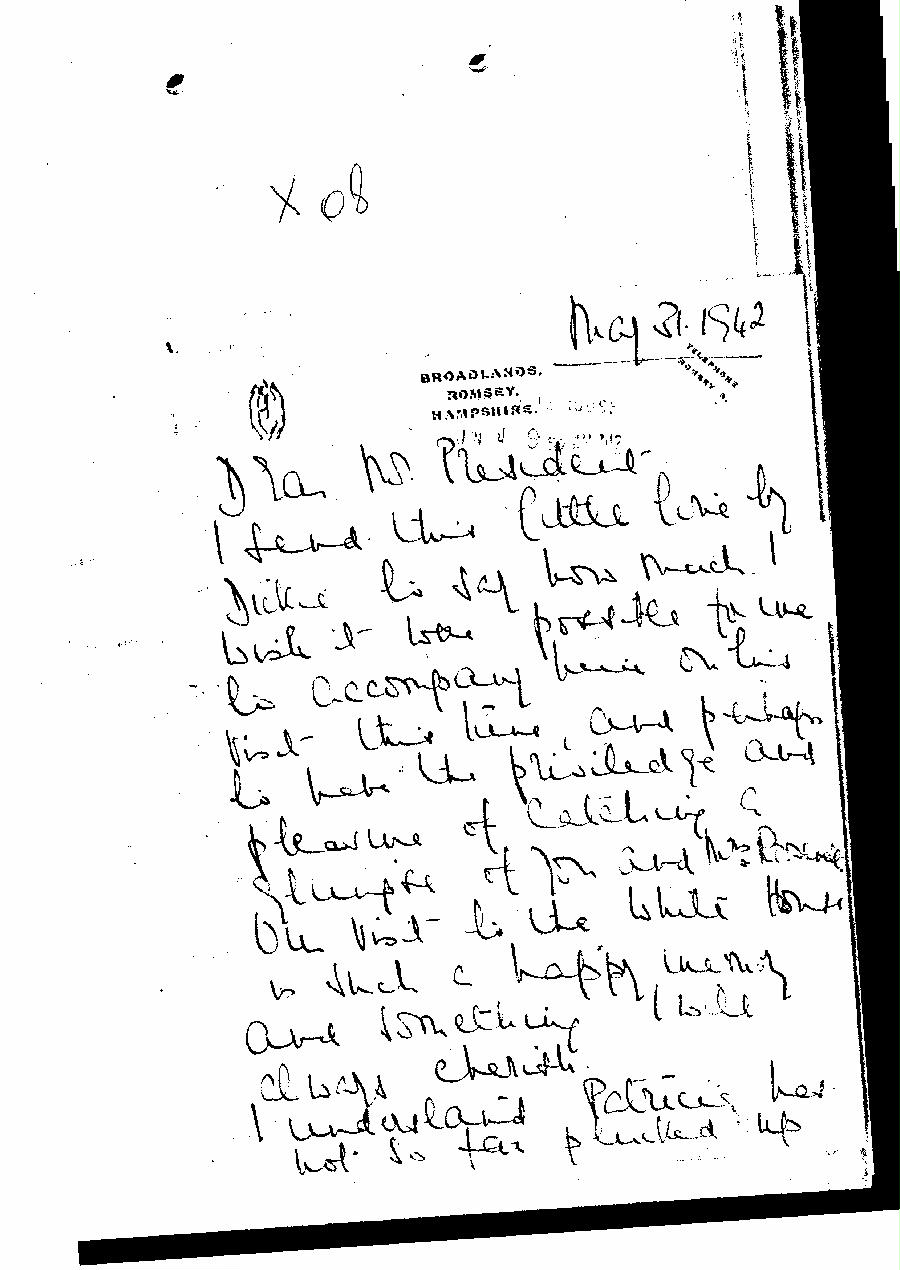 X 08
May 31. 1942
BROADLANDS,
ROMSEY,
HAMPSHIRE.
TELEPHONE
ROMSEY
Dear Mr. President
I send this little line by
Dickie to say how much I
wish it were possible for me
to accompany him on his
visit this time, and perhaps
to have the priviledge and
pleasure of catching a
glimpse of you and Mrs Roosevelt
Our visit to the White House
is such a happy memory
and something I will
always cherish.
I understand Patricia has
not so far plucked up